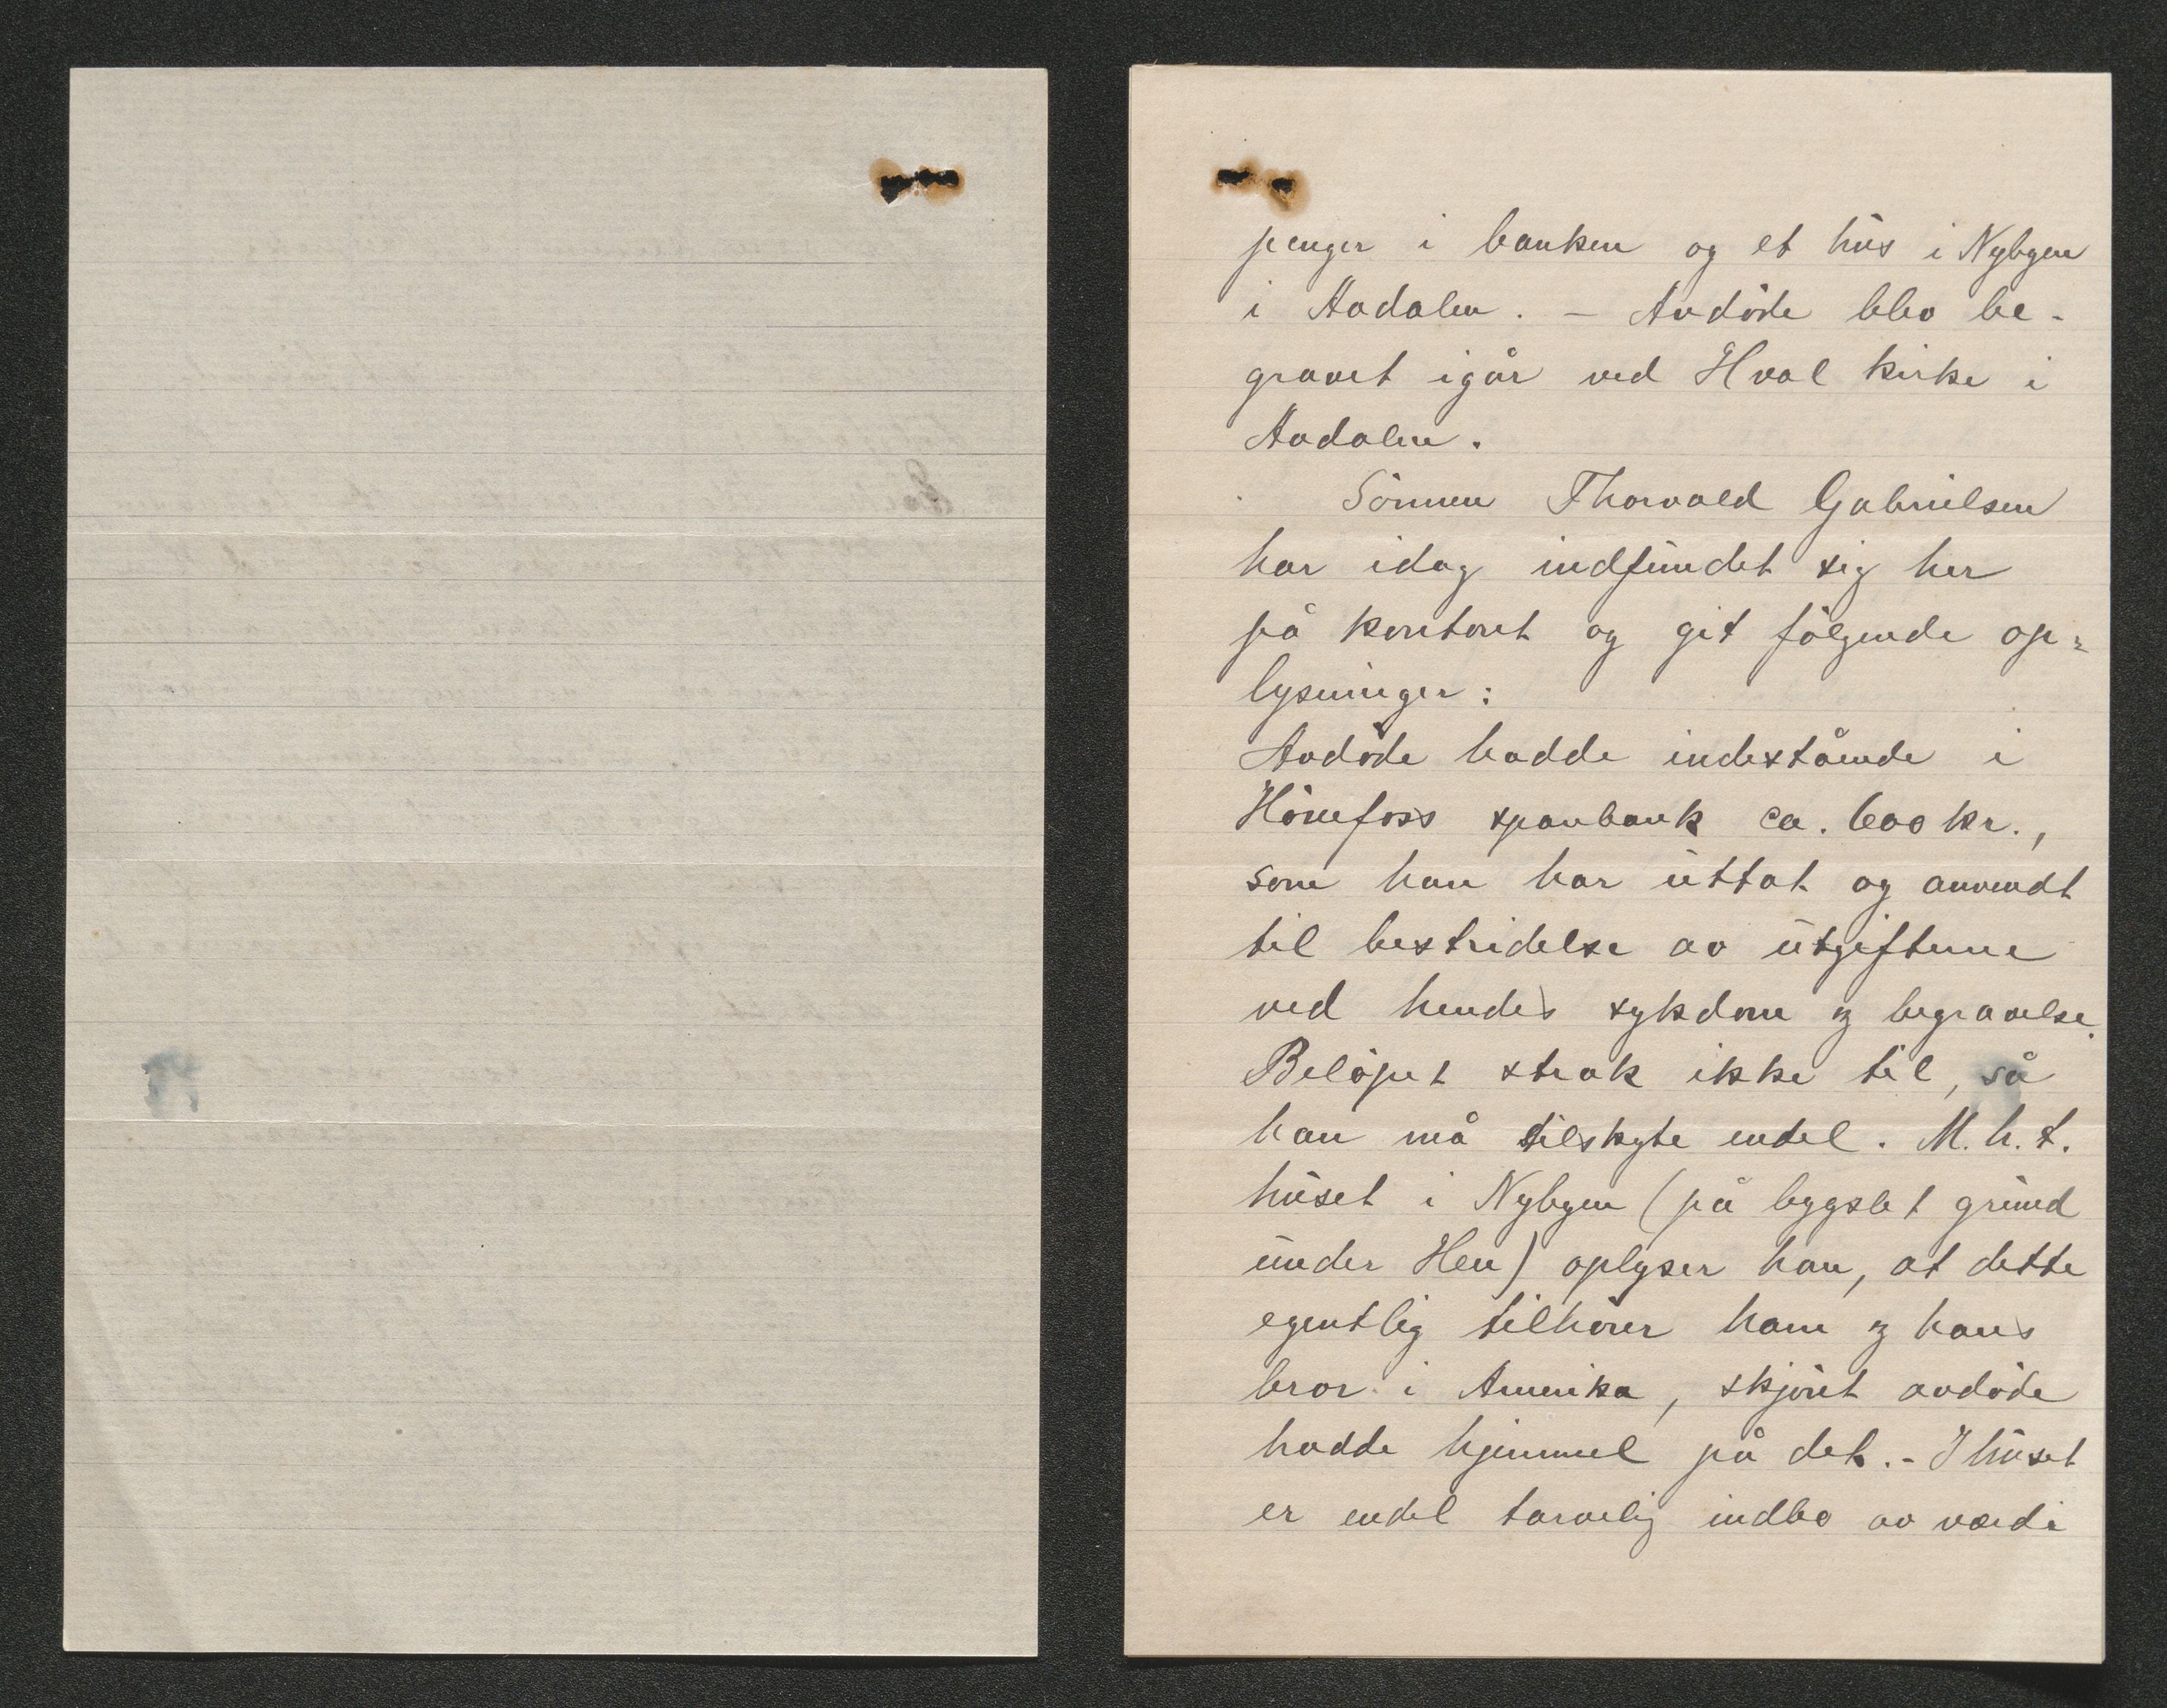 penger i banken og et hus i Nybyen
i Aadalen. – Avdöde blev be-
gravet igår ved Hval kirke i
Aadalen.
Sönnen Thorvald Gabrielsen
har idag indfundet sig her
på kontoret og git fölgende op=
lysninger:
Avdöde hadde indestående i
Hönefoss sparebank ca. 600 kr.,
som han har uttat og anvendt
til bestridelse av utgifterne
ved hendes sykdom og begravelse.
Belöpet strak ikke til, så
han må tilskyte endel. M.h.t.
huset i Nybyen (på bygslet grund
under Hen) oplyser han, at dette
egentlig tilhörer ham og hans
bror i Amerika, skjönt avdöde
hadde hjemmel på det. - I huset
er endel tarvelig indbo av værdi